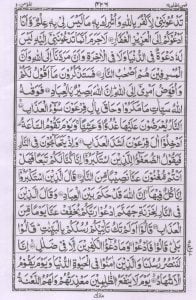 تَدْعُوْنَنِیْ لِاَكْفُرَ بِاللّٰهِ وَاُشْرِكَ بِهٖ مَا لَیْسَ لِیْ بِهٖ عِلْمٌ وَّاَنَا
اَدْعُوْكُمْ اِلَى الْعَزِیْزِ الْغَفَّارِ لَا جَرَمَ اَنَّمَا تَدْعُوْنَنِیْۤ اِلَیْهِ لَیْسَ
لَهٗ دَعْوَةٌ فِی الدُّنْیَا وَلَا فِی الْاٰخِرَةِ وَاَنَّ مَرَدَّنَاۤ اِلَى اللّٰهِ وَاَنَّ
الْمُسْرِفِیْنَ هُمْ اَصْحٰبُ النَّارِ فَسَتَذْكُرُوْنَ مَاۤ اَقُوْلُ لَكُمْ
وَاُفَوِّضُ اَمْرِیْۤ اِلَى اللّٰهِ اِنَّ اللّٰهَ بَصِیْرٌۢ بِالْعِبَادِ فَوَقٰىهُ
اللّٰهُ سَیِّاٰتِ مَا مَكَرُوْا وَحَاقَ بِاٰلِ فِرْعَوْنَ سُوْٓءُ الْعَذَابِ
اَلنَّارُ یُعْرَضُوْنَ عَلَیْهَا غُدُوًّا وَّعَشِیًّا وَیَوْمَ تَقُوْمُ السَّاعَةُ
اَدْخِلُوْۤا اٰلَ فِرْعَوْنَ اَشَدَّ الْعَذَابِ وَاِذْ یَتَحَآجُّوْنَ فِی النَّارِ
فَیَقُوْلُ الضُّعَفٰٓؤُا لِلَّذِیْنَ اسْتَكْبَرُوْۤا اِنَّا كُنَّا لَكُمْ تَبَعًا فَهَلْ
اَنْتُمْ مُّغْنُوْنَ عَنَّا نَصِیْبًا مِّنَ النَّارِ قَالَ الَّذِیْنَ اسْتَكْبَرُوْۤا
اِنَّا كُلٌّ فِیْهَاۤ اِنَّ اللّٰهَ قَدْ حَكَمَ بَیْنَ الْعِبَادِ وَقَالَ الَّذِیْنَ
فِی النَّارِ لِخَزَنَةِ جَهَنَّمَ ادْعُوْا رَبَّكُمْ یُخَفِّفْ عَنَّا یَوْمًا مِّنَ
الْعَذَابِ قَالُوْۤا اَوَلَمْ تَكُ تَاْتِیْكُمْ رُسُلُكُمْ بِالْبَیِّنٰتِ قَالُوْا
بَلٰى قَالُوْا فَادْعُوْا وَمَا دُعٰٓؤُا الْكٰفِرِیْنَ اِلَّا فِیْ ضَلٰلٍ اِنَّا
لَنَنْصُرُ رُسُلَنَا وَالَّذِیْنَ اٰمَنُوْا فِی الْحَیٰوةِ الدُّنْیَا وَیَوْمَ یَقُوْمُ
الْاَشْهَادُ یَوْمَ لَا یَنْفَعُ الظّٰلِمِیْنَ مَعْذِرَتُهُمْ وَلَهُمُ اللَّعْنَةُ